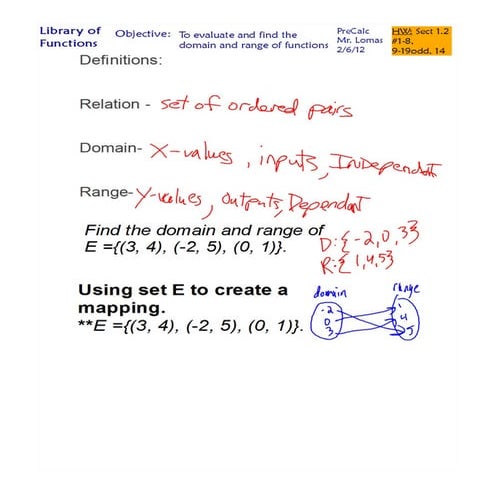 Library of Functions
Objective: To evaluate and find the domain and range of functions
PreCalc
Mr. Lomas
2/6/12
HW: Sect 1.2
#1-8,
9-19odd, 14
Definitions:
Relation - set of ordered pairs
Domain- X-values, inputs, Independent
Range- Y-values, outputs, Dependant
Find the domain and range of
E ={(3, 4), (-2, 5), (0, 1)}.
D: {-2, 0, 3}
R: {1, 4, 5}
Using set E to create a
mapping.
**E ={(3, 4), (-2, 5), (0, 1)}.
domain range
-2 1
0 4
3 5